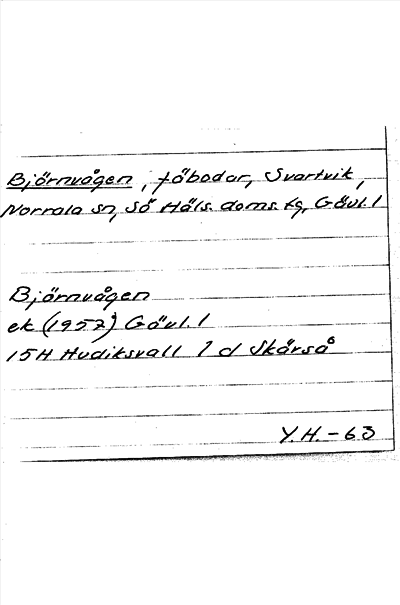 Björnvågen, fäbodar, Svartvik,
Norrala sn, Sö Häls. doms. fg, Gävl. l
Björnvågen
ek (1957) Gävl. l
15H Hudiksvall 1 d Skärså
Y.H. - 63